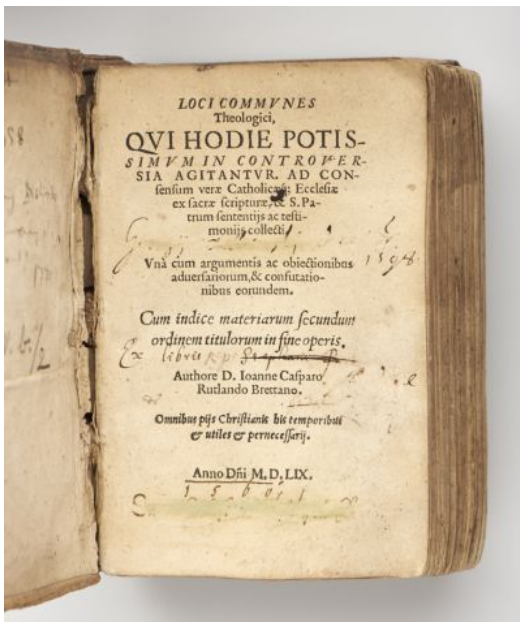 LOCI COMMVNES
Theologici,
QVI HODIE POTIS-
SIMVM IN CONTROVER-
SIA AGITANTVR. AD CON-
sensum veræ Catholicæq; Ecclesiæ
ex sacræ scripturæ, & S. Pa-
trum sententijs ac testi-
monijs collecti,
1598
Vnà cum argumentis ac obiectionibus
aduersariorum, & confutatio-
nibus eorundem.
Cum indice materiarum secundum
ordinem titulorum in fine operis.
Ex libris
Authore D. Ioanne Casparo
Rutlando Brettano.
Omnibus pijs Christianis his temporibus
& utiles & pernecessarij.
Anno Dñi M. D. LIX.